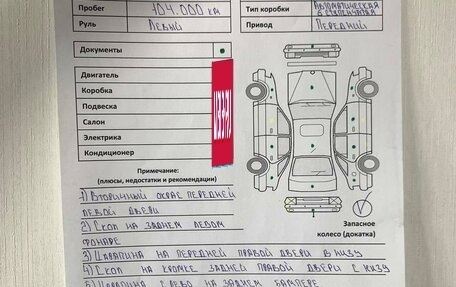 Пробег 104.000 км
Тип коробки Автоматическая 6 ступенчатая
Руль Левый
Привод Передний
Документы
Двигатель
Коробка
Подвеска
Салон
Электрика
Кондиционер
Примечание:
(плюсы, недостатки и рекомендации)
1) Вторичный окрас передней
левой двери
2) Скол на заднем левом
фонаре
Запасное
колесо (докатка)
3) Царапина на передней правой двери в низу
4) Скол на кромке задней правой двери с низу
5) Царапина слево на заднем бампере